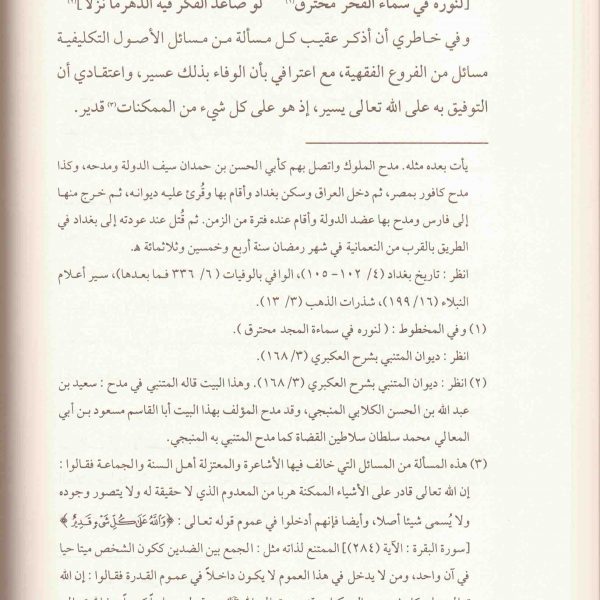 [لنوره في سماء الفخر محترق(١) لو صاعد الفكر فيه الدهر ما نزلا](٢)
وفي خاطري أن أذكر عقيب كل مسألة من مسائل الأصول التكليفية
مسائل من الفروع الفقهية، مع اعترافي بأن الوفاء بذلك عسير، واعتقادي أن
التوفيق به على الله تعالى يسير، إذ هو على كل شيء من الممكنات(٣) قدير.
يأت بعده مثله. مدح الملوك واتصل بهم كأبي الحسن بن حمدان سيف الدولة ومدحه، وكذا
مدح كافور بمصر، ثم دخل العراق وسكن بغداد وأقام بها وقُرئ عليه ديوانه، ثم خرج منها
إلى فارس ومدح بها عضد الدولة وأقام عنده فترة من الزمن. ثم قُتل عند عودته إلى بغداد في
الطريق بالقرب من النعمانية في شهر رمضان سنة أربع وخمسين وثلاثمائة هـ.
انظر : تاريخ بغداد (٤/ ١٠٢ - ١٠٥)، الوافي بالوفيات (٦/ ٣٣٦ فما بعدها)، سير أعلام
النبلاء (١٦/ ١٩٩)، شذرات الذهب (٣/ ١٣).
(١) وفي المخطوط : ( لنوره في سماءة المجد محترق ).
انظر : ديوان المتنبي بشرح العكبري (٣/ ١٦٨).
(٢) انظر : ديوان المتنبي بشرح العكبري (٣/ ١٦٨). وهذا البيت قاله المتنبي في مدح : سعيد بن
عبد الله بن الحسن الكلابي المنبجي، وقد مدح المؤلف بهذا البيت أبا القاسم مسعود بن أبي
المعالي محمد سلطان سلاطين القضاة كما مدح المتنبي به المنبجي.
(٣) هذه المسألة من المسائل التي خالف فيها الأشاعرة والمعتزلة أهل السنة والجماعة فقالوا :
إن الله تعالى قادر على الأشياء الممكنة هربا من المعدوم الذي لا حقيقة له ولا يتصور وجوده
ولا يُسمى شيئا أصلا، وأيضا فإنهم أدخلوا في عموم قوله تعالى : ﴿وَاللَّهُ عَلَىٰ كُلِّ شَيْءٍ قَدِيرٌ﴾
[سورة البقرة : الآية (٢٨٤)] الممتنع لذاته مثل : الجمع بين الضدين ككون الشخص ميتا حيا
في آن واحد، ومن لا يدخل في هذا العموم لا يكون داخلاً في عموم القدرة فقالوا : إن الله